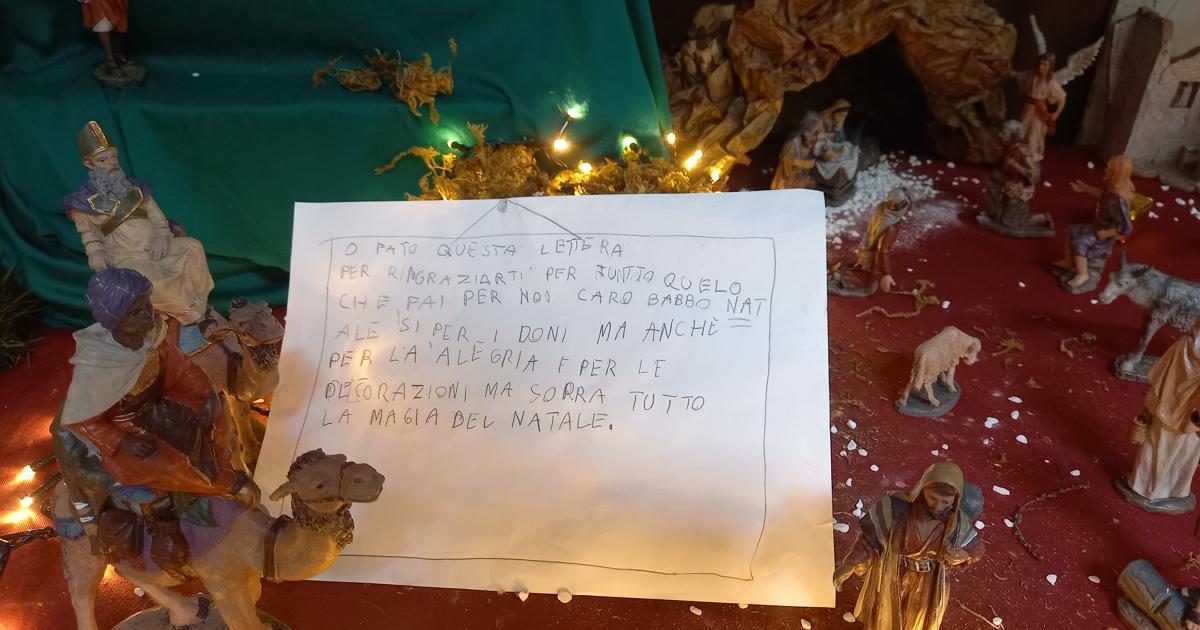 O FATO QUESTA LETTERA
PER RINGRAZIARTI PER TUNTTO QUELO
CHE FAI PER NOI CARO BABBO NAT
ALE SI PER I DONI MA ANCHE
PER LA ALEGRIA E PER LE
DECORAZIONI MA SOPRA TUTTO
LA MAGIA DEL NATALE.